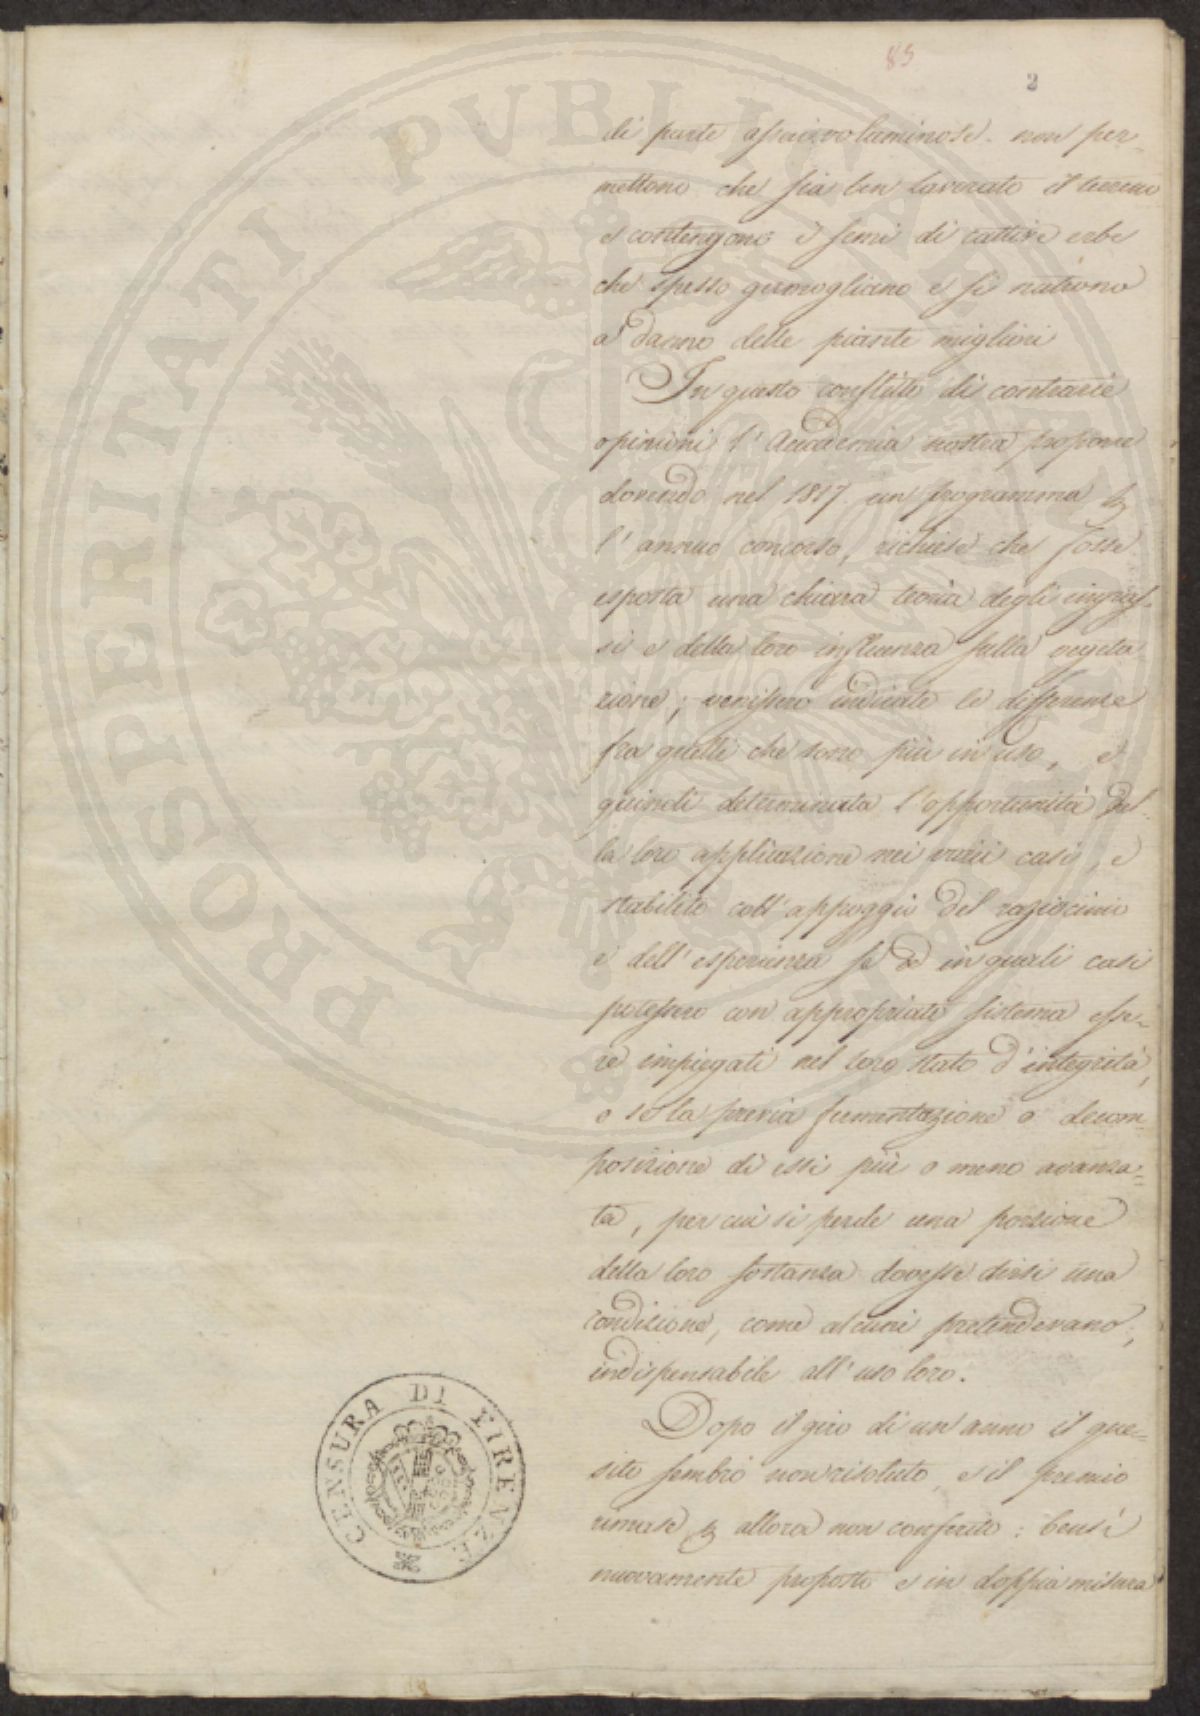 85
2
di parte assai voluminose non per-
mettono che sia ben lavorato il terreno
e contengono i semi di cattive erbe
che spesso germogliano e si nutrono
a danno delle piante migliori
In questo conflitto di contrarie
opinioni l'Accademia nostra proporre
dovendo nel 1817 un programma p
l'annuo concorso, richiese che fosse
esposta una chiara teoria degli ingras-
si e della loro influenza sulla vegeta
zione; venissero indicate le differenze
fra quelli che sono più in uso, e
quindi determinata l'opportunità del-
la loro applicazione nei varii casi, e
stabilito coll'appoggio del raziocinio
e dell'esperienza se ed in quali casi
potessero con appropriato sistema esse-
re impiegati nel loro stato d'integrità,
o se la previa fermentazione o decom-
posizione di essi più o meno avanza=
ta, per cui si perde una porzione
della loro sostanza dovesse dirsi una
condizione, come alcuni pretendevano,
indispensabile all'uso loro.
Dopo il giro di un anno il que-
sito sembrò non risoluto, e il premio
rimase p allora non conferito: bensì
nuovamente proposto e in doppia misura
CENSURA DI FIRENZE
PROSPERITATI PUBLICAE